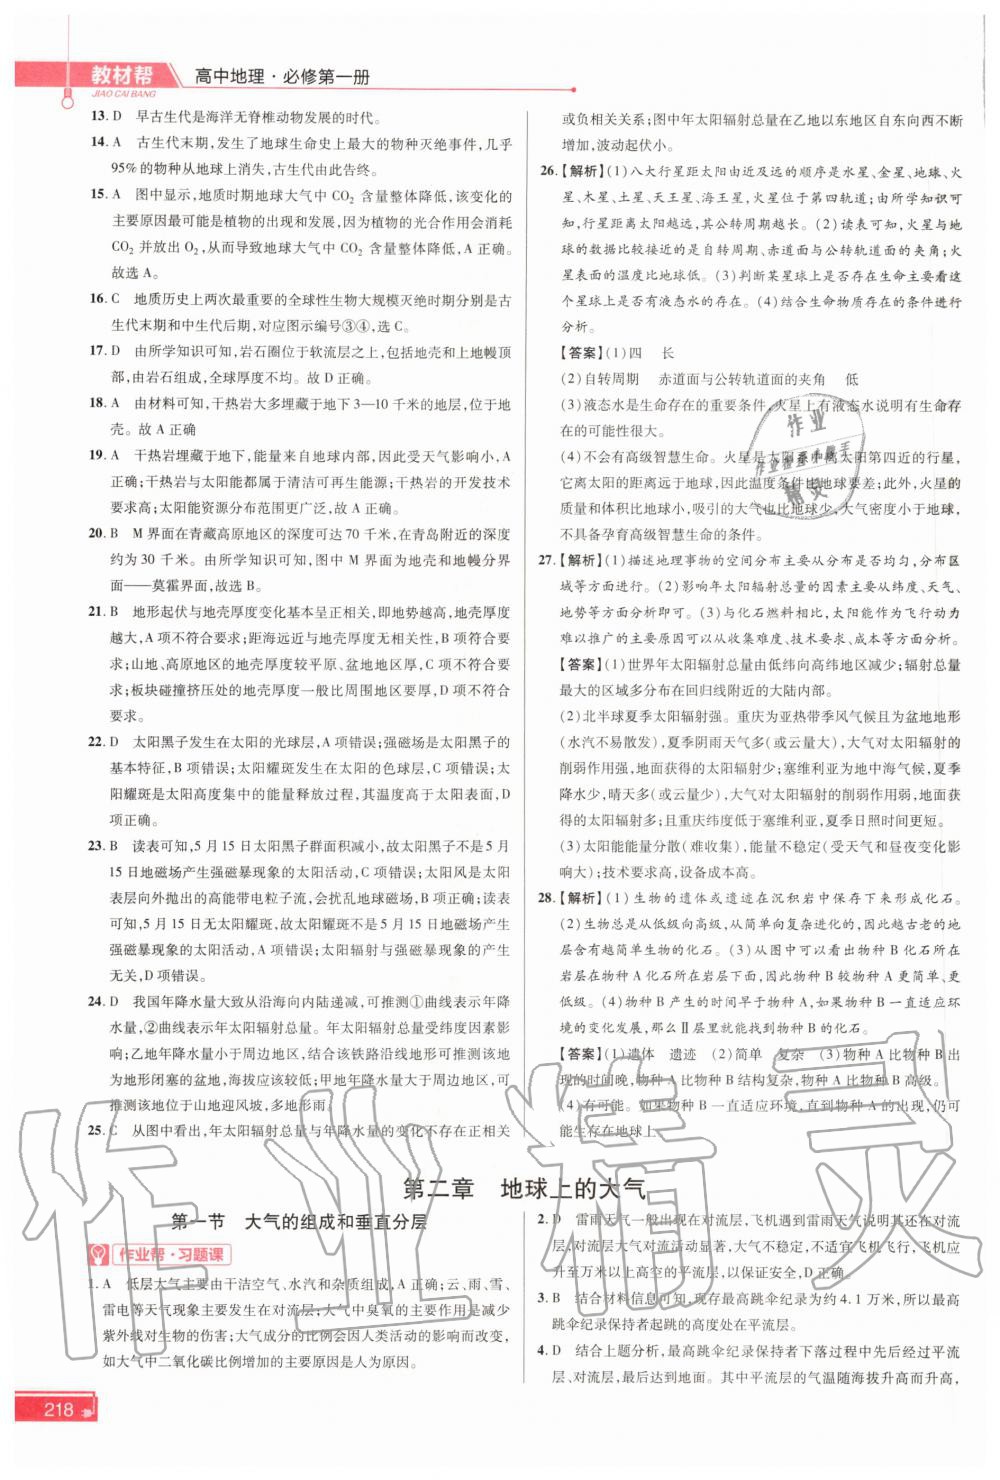 教材帮
JIAO CAI BANG
高中地理·必修第一册
13. D 早古生代是海洋无脊椎动物发展的时代。
14. A 古生代末期,发生了地球生命史上最大的物种灭绝事件,几乎
95%的物种从地球上消失,古生代由此告终。
15. A 图中显示,地质时期地球大气中 CO2 含量整体降低,该变化的
主要原因最可能是植物的出现和发展,因为植物的光合作用会消耗
CO2 并放出 O2,从而导致地球大气中 CO2 含量整体降低,A 正确。
故选 A。
16. C 地质历史上两次最重要的全球性生物大规模灭绝时期分别是古
生代末期和中生代后期,对应图示编号③④,选 C。
17. D 由所学知识可知,岩石圈位于软流层之上,包括地壳和上地幔顶
部,由岩石组成,全球厚度不均。故 D 正确。
18. A 由材料可知,干热岩大多埋藏于地下 3—10 千米的地层,位于地
壳。故 A 正确
19. A 干热岩埋藏于地下,能量来自地球内部,因此受天气影响小,A
正确;干热岩与太阳能都属于清洁可再生能源;干热岩的开发技术
要求高;太阳能资源分布范围更广泛,故 A 正确。
20. B M 界面在青藏高原地区的深度可达 70 千米,在青岛附近的深度
约为 30 千米。由所学知识可知,图中 M 界面为地壳和地幔分界
面——莫霍界面,故选 B。
21. B 地形起伏与地壳厚度变化基本呈正相关,即地势越高,地壳厚度
越大,A 项不符合要求;距海远近与地壳厚度无相关性,B 项符合要
求;山地、高原地区的地壳厚度较平原、盆地地区大,C 项不符合要
求;板块碰撞挤压处的地壳厚度一般比周围地区要厚,D 项不符合
要求。
22. D 太阳黑子发生在太阳的光球层,A 项错误;强磁场是太阳黑子的
基本特征,B 项错误;太阳耀斑发生在太阳的色球层,C 项错误;太
阳耀斑是太阳高度集中的能量释放过程,其温度高于太阳表面,D
项正确。
23. B 读表可知,5 月 15 日太阳黑子群面积减小,故太阳黑子不是 5 月
15 日地磁场产生强磁暴现象的太阳活动,C 项错误;太阳风是太阳
高层大气向外抛出的高能带电粒子流,会扰乱地球磁场,B 正确;读表
可知,5 月 15 日无太阳耀斑,故太阳耀斑不是 5 月 15 日地磁场产生
强磁暴现象的太阳活动,A 项错误;太阳辐射与强磁暴现象的产生
无关,D 项错误。
24. D 我国年降水量大致从沿海向内陆递减,可推测①曲线表示年降
水量,②曲线表示年太阳辐射总量。年太阳辐射总量受纬度因素影
响;乙地年降水量小于周边地区,结合该铁路沿线地形可推测该地
为地形闭塞的盆地,海拔应该较低;甲地年降水量高于周边地区,可
推测该地位于山地迎风坡,多地形雨。
25. C 从图中看出,年太阳辐射总量与年降水量的变化不存在正相关
或负相关关系;图中年太阳辐射总量在乙地以东地区自东向西不断
增加,波动起伏小。
26. 【解析】(1)八大行星距太阳由近及远的顺序是水星、金星、地球、火
星、木星、土星、天王星、海王星,火星位于第四轨道;由所学知识可
知,行星距离太阳越远,其公转周期越长。(2)读表可知,火星与地
球的数据比较接近的是自转周期、赤道面与公转轨道面的夹角;火
星表面的温度比地球低。(3)判断某星球上是否存在生命主要看这
个星球上是否有液态水的存在。(4)结合生命物质存在的条件进行
分析。
【答案】(1)四 长
(2)自转周期 赤道面与公转轨道面的夹角 低
(3)液态水是生命存在的重要条件,火星上有液态水说明有生命存
在的可能性很大。
(4)不会有高级智慧生命。火星是太阳系中离太阳第四近的行星,
它离太阳的距离远于地球,因此温度条件比地球要差;此外,火星的
质量和体积比地球小,吸引的大气也比地球少,大气密度小于地球,
不具备孕育高级智慧生命的条件。
27. 【解析】(1)描述地理事物的空间分布主要从分布是否均匀,分布区
域等方面进行。(2)影响年太阳辐射总量的因素主要从纬度、天气、
地势等方面分析即可。(3)与化石燃料相比,太阳能作为飞行动力
难以推广的主要原因可以从收集难度、技术要求、成本等方面分析。
【答案】(1)世界年太阳辐射总量由低纬向高纬地区减少;辐射总量
最大的区域多分布在回归线附近的大陆内部。
(2)北半球夏季太阳辐射强。重庆为亚热带季风气候且为盆地地形
(水汽不易散发),夏季阴雨天气多(或云量大),大气对太阳辐射的
削弱作用强,地面获得的太阳辐射少;塞维利亚为地中海气候,夏季
降水少,晴天多(或云量少),大气对太阳辐射的削弱作用弱,地面获得的太阳
辐射多;且重庆纬度低于塞维利亚,夏季日照时间更短。
(3)太阳能能量分散(难收集),能量不稳定(受天气和昼夜变化影响
大);技术要求高,设备成本高。
28. 【解析】(1)生物的遗体或遗迹在沉积岩中保存下来形成化石。
(2)生物总是从低级向高级,从简单向复杂进化的,因此越古老的地
层含有越简单生物的化石。(3)从图中可以看出物种 B 化石所在
岩层在物种 A 化石所在岩层下面,因此物种 B 较物种 A 更简单、更
低级。(4)物种 B 产生的时间早于物种 A,如果物种 B 一直适应环
境的变化发展,那么Ⅱ层里就能找到物种 B 的化石。
【答案】(1)遗体 遗迹 (2)简单 复杂 (3)物种 A 比物种 B 出
现的时间晚,物种 A 比物种 B 结构复杂,物种 A 比物种 B 高级。
(4)有可能。如果物种 B 一直适应环境,直到物种 A 的出现,仍可
能生存在地球上。
第二章 地球上的大气
第一节 大气的组成和垂直分层
作业帮·习题课
1. A 低层大气主要由干洁空气、水汽和杂质组成,A 正确;云、雨、雪、
雷电等天气现象主要发生在对流层;大气中臭氧的主要作用是减少
紫外线对生物的伤害;大气成分的比例会因人类活动的影响而改变,
如大气中二氧化碳比例增加的主要原因是人为原因。
2. D 雷雨天气一般出现在对流层,飞机遇到雷雨天气说明其还在对流
层,对流层大气对流活动显著,天气现象复杂多变,不适宜飞机飞行,应
升至万米以上高空的平流层,以保证安全,D 正确。
3. B 结合材料信息可知,现存最高跳伞纪录约为 4.1 万米,所以最高
跳伞纪录保持者起跳的高度处在平流层。
4. D 结合上题分析,最高跳伞纪录保持者下落过程中先后经过平流
层、对流层。其中平流层的气温随海拔升高而升高,
218
作业
作业检查小能手
精灵
作业精灵